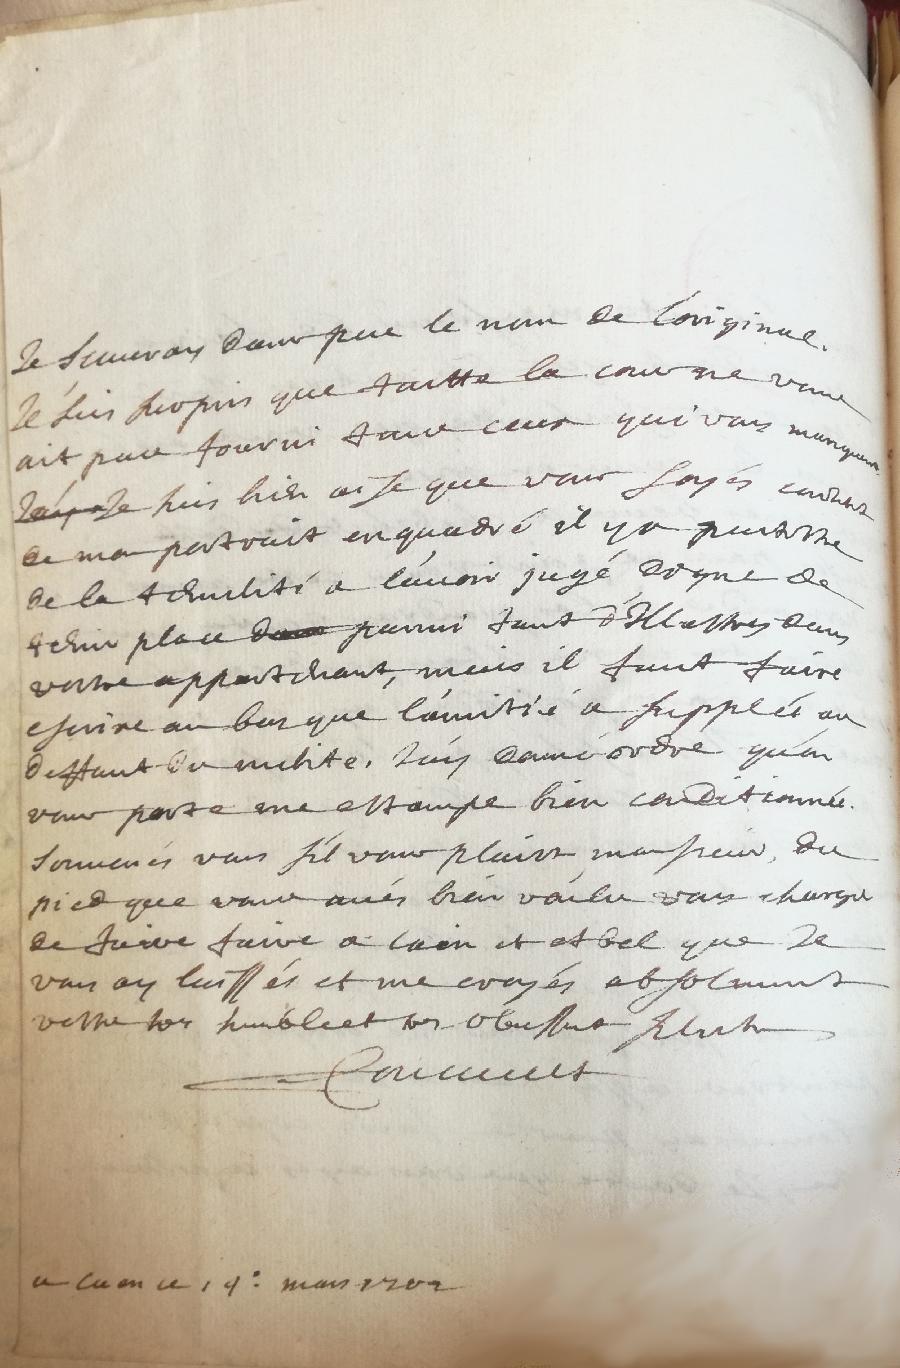 Je scauray dans peu le nom de l'original.
Je suis surpris que toutte la cour ne vous
ait peu fournir tous ceux qui vous manquent.
Je suis bien aise que vous soyés content
de mon portrait enquadré il y a peutestre
de la temerité a l'auoir jugé digne de
tenir place parmi tant d'Illustres dans
vostre appartement, mais il faut faire
escrire au bas que l'amitié a suppléé au
deffaut du merite. J'ay donné ordre qu'on
vous porte une estampe bien conditionnée.
Souuenés vous s'il vous plaist monsieur, du
pied que vous aués bien voulu vous charger
de faire faire a et que Je
vous ay laissés et me croyés absolument
vostre tres humble et tres obeissant seruiteur
Foucault
a Caen ce 19: mars 1702